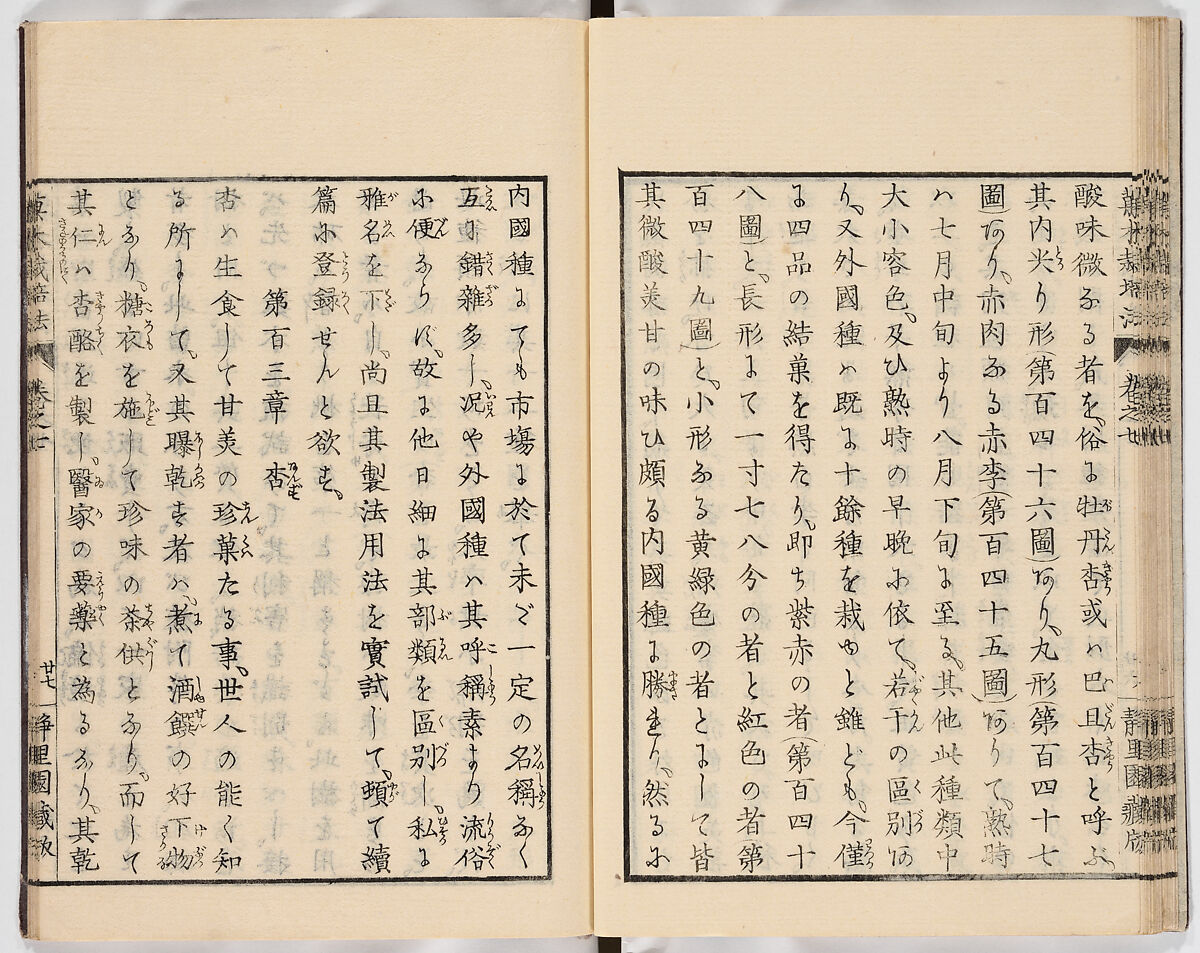 酸味微なる者を、俗に牡丹杏或ハ巴旦杏と呼ぶ、
其内尖り形第百四十六圖あり、丸形(第百四十七
圖)あり、赤肉なる赤李(第百四十五圖)ありて、熟時
ハ七月中旬より八月下旬に至る、其他此種類中
大小容色、及ひ熟時の早晩に依て、若干の區別あ
り、又外國種ハ既に十餘種を栽ゆと雖とも、今僅
に四品の結菓を得たり、即ち紫赤の者(第百四十
八圖)と、長形にて一寸七八分の者と紅色の者第
百四十九圖)と、小形なる黄緑色の者とにして皆
其微酸美甘の味ひ頗る内國種に勝れり、然るに
巻之七
静里園藏版
内國種にても市塲に於て未ざ一定の名稱なく
互に錯雜多し、况や外國種ハ其呼稱素より流俗
に便ならず、故に他日細に其部類を區別し、私に
雅名を下し、尚且其製法用法を實試して、頓て續
篇に登録せんと欲す、
第百三章 杏
杏ハ生食して甘美の珍菓たる事、世人の能く知
る所にして、又其曝乾す者ハ、煮て酒饌の好下物
となり、糖衣を施して珍味の茶供となり、而して
其仁ハ杏酪を製し、醫家の要藥と為るなり、其乾
栽培法
巻之七
廿七
静里園藏版